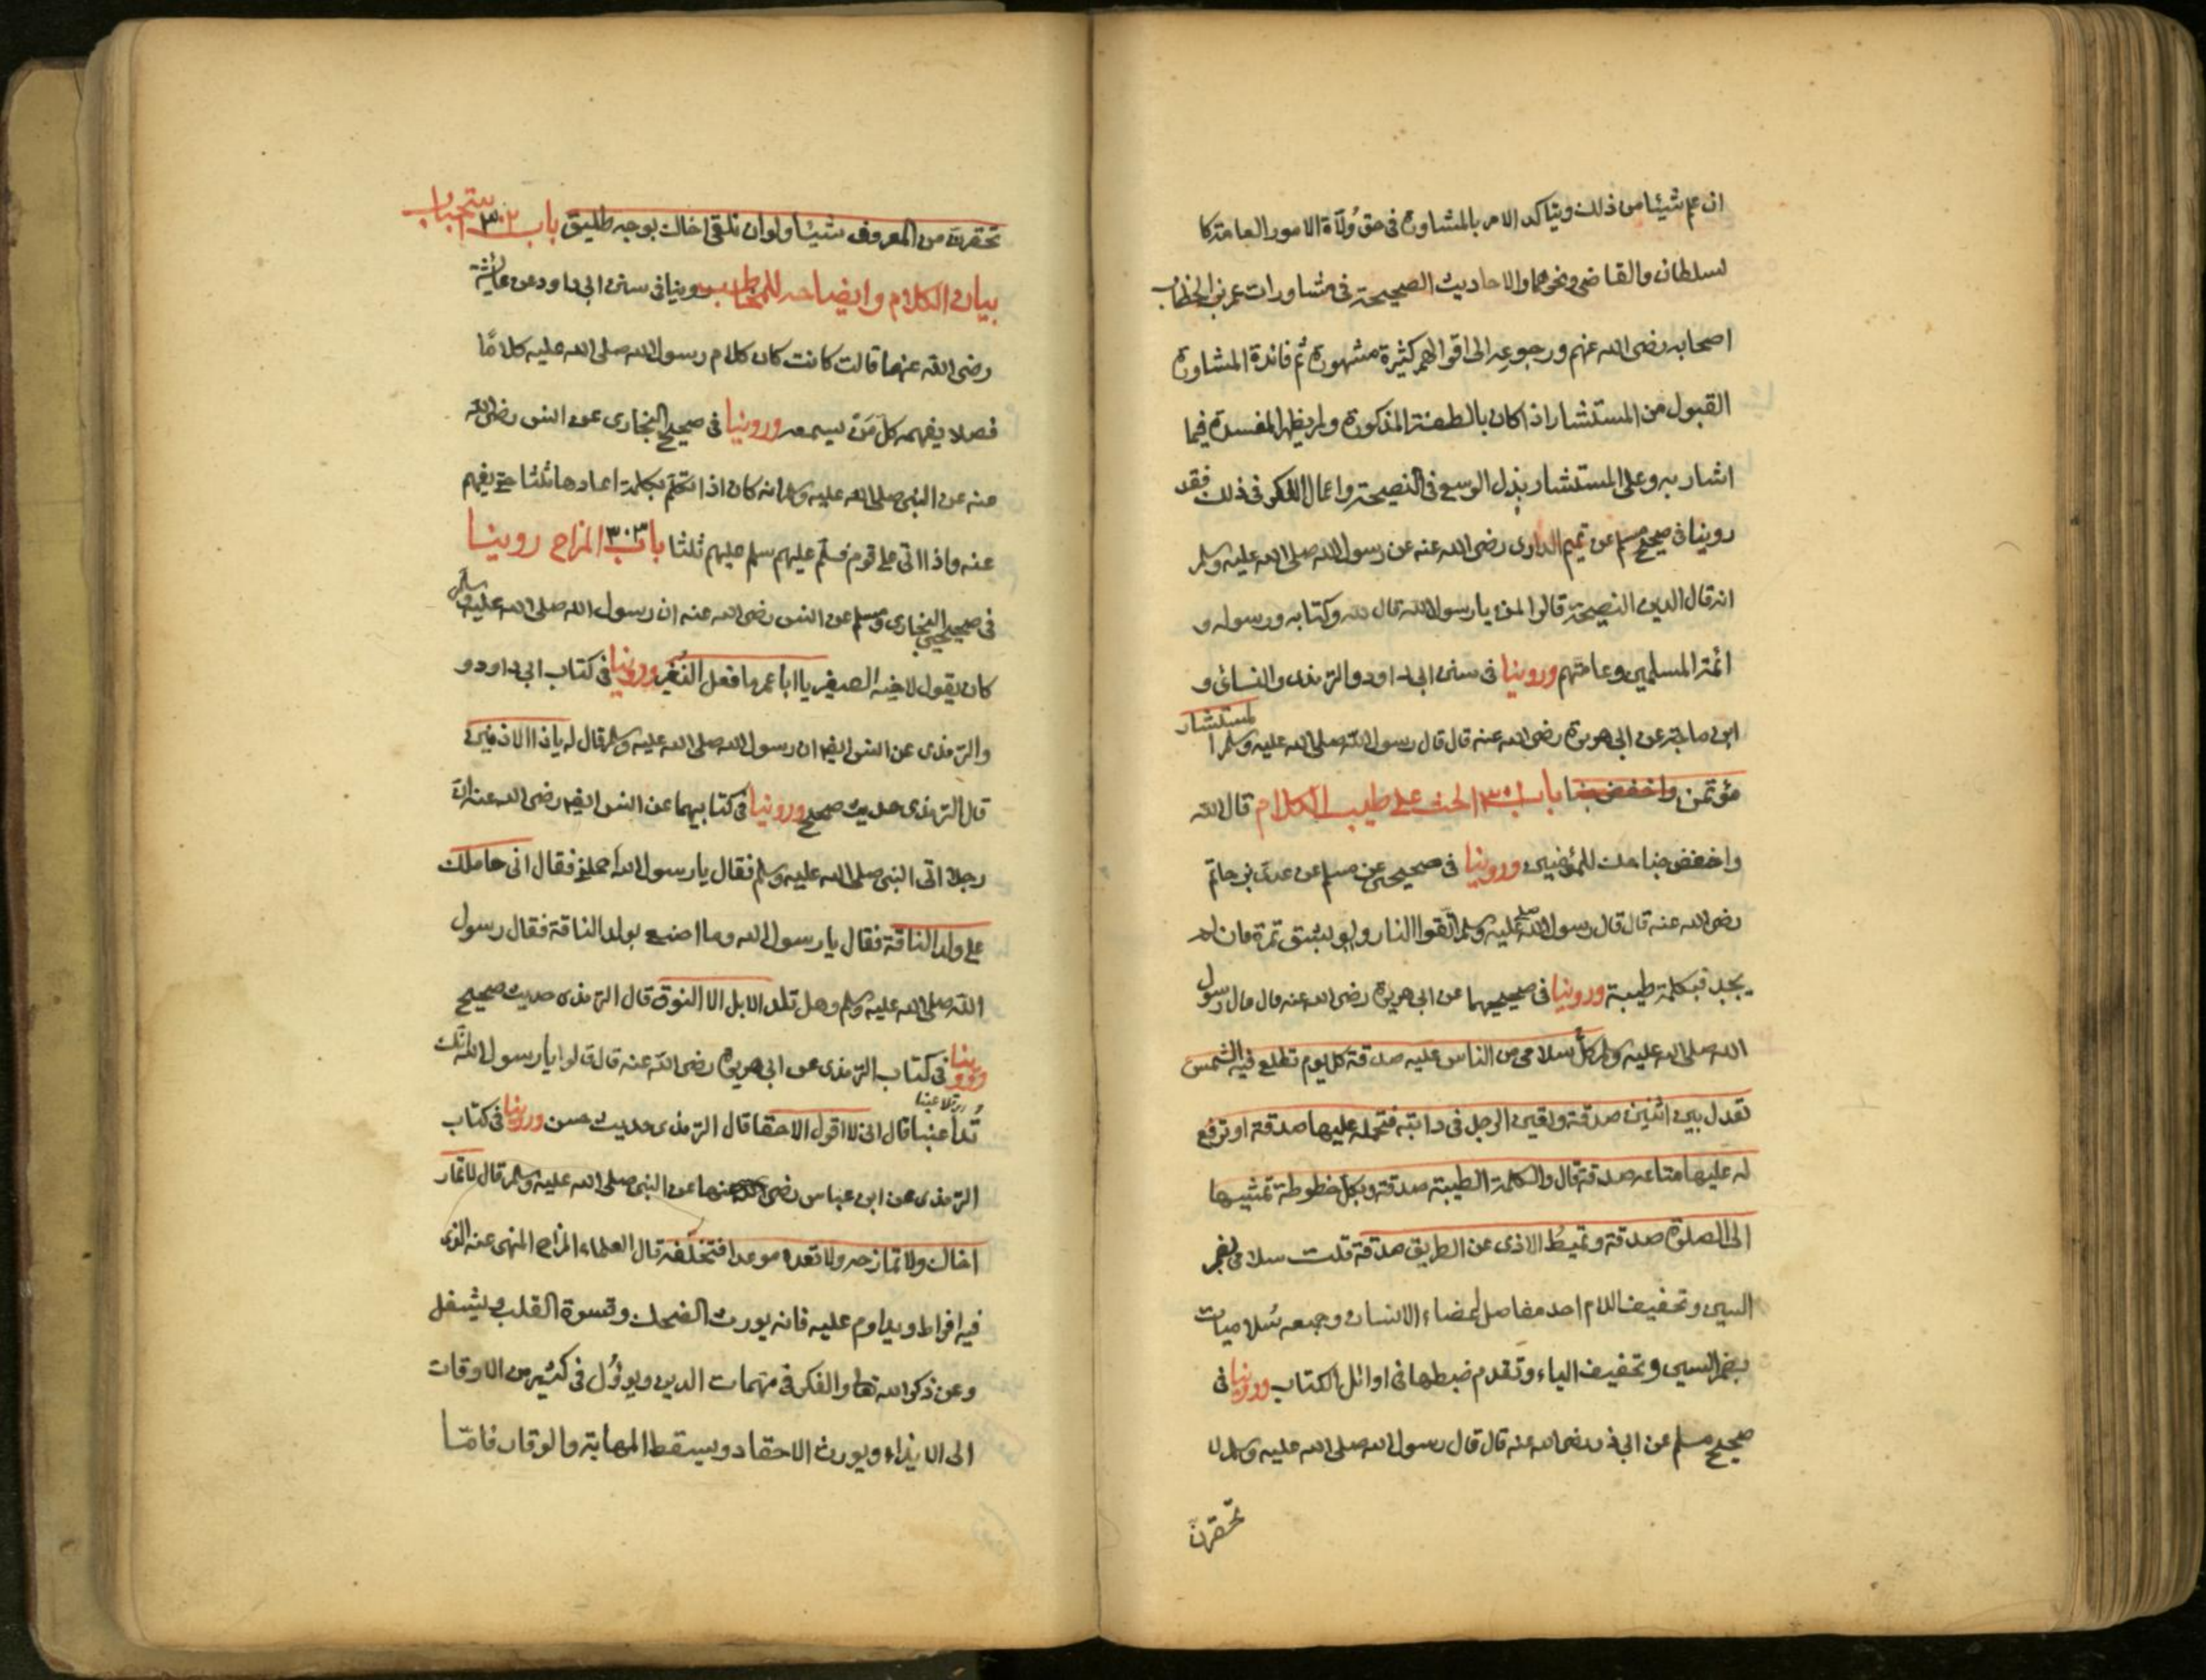 ان عم شيئا من ذلك ويتأكد الامر بالمشاورة فى حق وُلاة الامور العامة كا
لسلطان والقاضى ونحوهما والاحاديث الصحيحة فى مشاورات عمر بن الخطاب
اصحابه رضى الله عنهم ورجوعه الى اقوالهم كثيرة مشهورة ثم فائدة المشاورة
القبول من المستشار اذا كان بالصفة المذكورة ولم يظهر المفسدة فيما
اشار به وعلى المستشار بذل الوسع فى النصيحة واعمال الفكر فى ذلك فقد
روينا فى صحيح مسلم عن تميم الدارى رضى الله عنه عن رسول الله صلى الله عليه وسلم
انه قال الدين النصيحة قالوا لمن يا رسول الله قال لله وكتابه ورسوله و
ائمة المسلمين وعامتهم وروينا فى سنن ابى داود والترمذى والنسائى و
ابن ماجة عن ابى هريرة رضى الله عنه قال قال رسول الله صلى الله عليه وسلم المستشار
مؤتمن واخفض جنا باب ٣٠١ الحث على طيب الكلام قال الله
واخفض جناحك للمؤمنين وروينا فى صحيحى مسلم عن عدى بن حاتم
رضى الله عنه قال قال رسول الله صلى عليه وسلم اتقوا النار ولو بشق تمرة فان لم
يجد فبكلمة طيبة وروينا فى صحيحيهما عن ابى هريرة رضى الله عنه قال قال رسول
الله صلى الله عليه وسلم كل سلامى من الناس عليه صدقة كل يوم تطلع فيه الشمس
تعدل بين اثنين صدقة وتعين الرجل فى دابته فتحمله عليها صدقة او ترفع
له عليها متاعه صدقة قال والكلمة الطيبة صدقة وبكل خطوطة تمشيها
الى الصلوة صدقة وتميط الاذى عن الطريق صدقة قلت سلامى بضم
السين وتخفيف اللام احد مفاصل اعضاء الانسان وجمعه سُلاميات
بضم السين وتخفيف الياء وتقدم ضبطها فى اوائل الكتاب وروينا فى
صحيح مسلم عن ابى ذر رضى الله عنه قال قال رسول الله صلى الله عليه وسلم لا
تحقرنّ
تحقرن من المعروف شيئا ولو ان تلقى اخاك بوجه طليق باب ٣٠٢ استحباب
بيان الكلام وايضاحه للمخاطب روينا فى سنن ابى داود عن عائشة
رضى الله عنها قالت كانت كان كلام رسول الله صلى الله عليه كلامًا
فصلا يفهمه كل مَن يسمعه وروينا فى صحيح البخارى عن انس رضى الله
عنه عن النبى صلى الله عليه وسلم انه كان اذا تكلم بكلمة اعادها ثلثا حتى يفهم
عنه واذا اتى على قوم فسلم عليهم سلم عليهم ثلثا باب ٣٠٣ المزاح روينا
فى صحيحى البخارى ومسلم عن انس رضى الله عنه ان رسول الله صلى الله عليه وسلم
كان يقول لاخيه الصغير يا ابا عمر ما فعل النُغير وروينا فى كتاب ابى داود و
والترمذى عن انس ايضا ان رسول الله صلى الله عليه وسلم قال له يا ذا الاذنين
قال الترمذى حديث صحيح وروينا فى كتابيهما عن انس ايضا رضى الله عنه ان
رجلا اتى النبى صلى الله عليه وسلم فقال يا رسول الله احملنى فقال انى حاملك
على ولد الناقة فقال يا رسول الله وما اصنع بولد الناقة فقال رسول
الله صلى الله عليه وسلم وهل تلد الابل الا النوق قال الترمذى حديث صحيح
وروينا فى كتاب الترمذى عن ابى هريرة رضى الله عنه قال قالوا يا رسول الله انك
تُداعبنا قال انى لا اقول الا حقا قال الترمذى حديث حسن وروينا فى كتاب
الترمذى عن ابن عباس رضى الله عنهما عن النبى صلى الله عليه وسلم قال لا تمار
اخاك ولا تمازحه ولا تعده موعدا فتخلفه قال العلماء المزاح المنهى عنه الذى
فيه افراط ويداوم عليه فانه يورث الضحك وقسوة القلب ويشغل
وعن ذكر الله تعالى والفكر فى مهمات الدين ويوؤل فى كثير من الاوقات
الى الايذاء ويورث الاحقاد ويسقط المهابة والوقار فاما